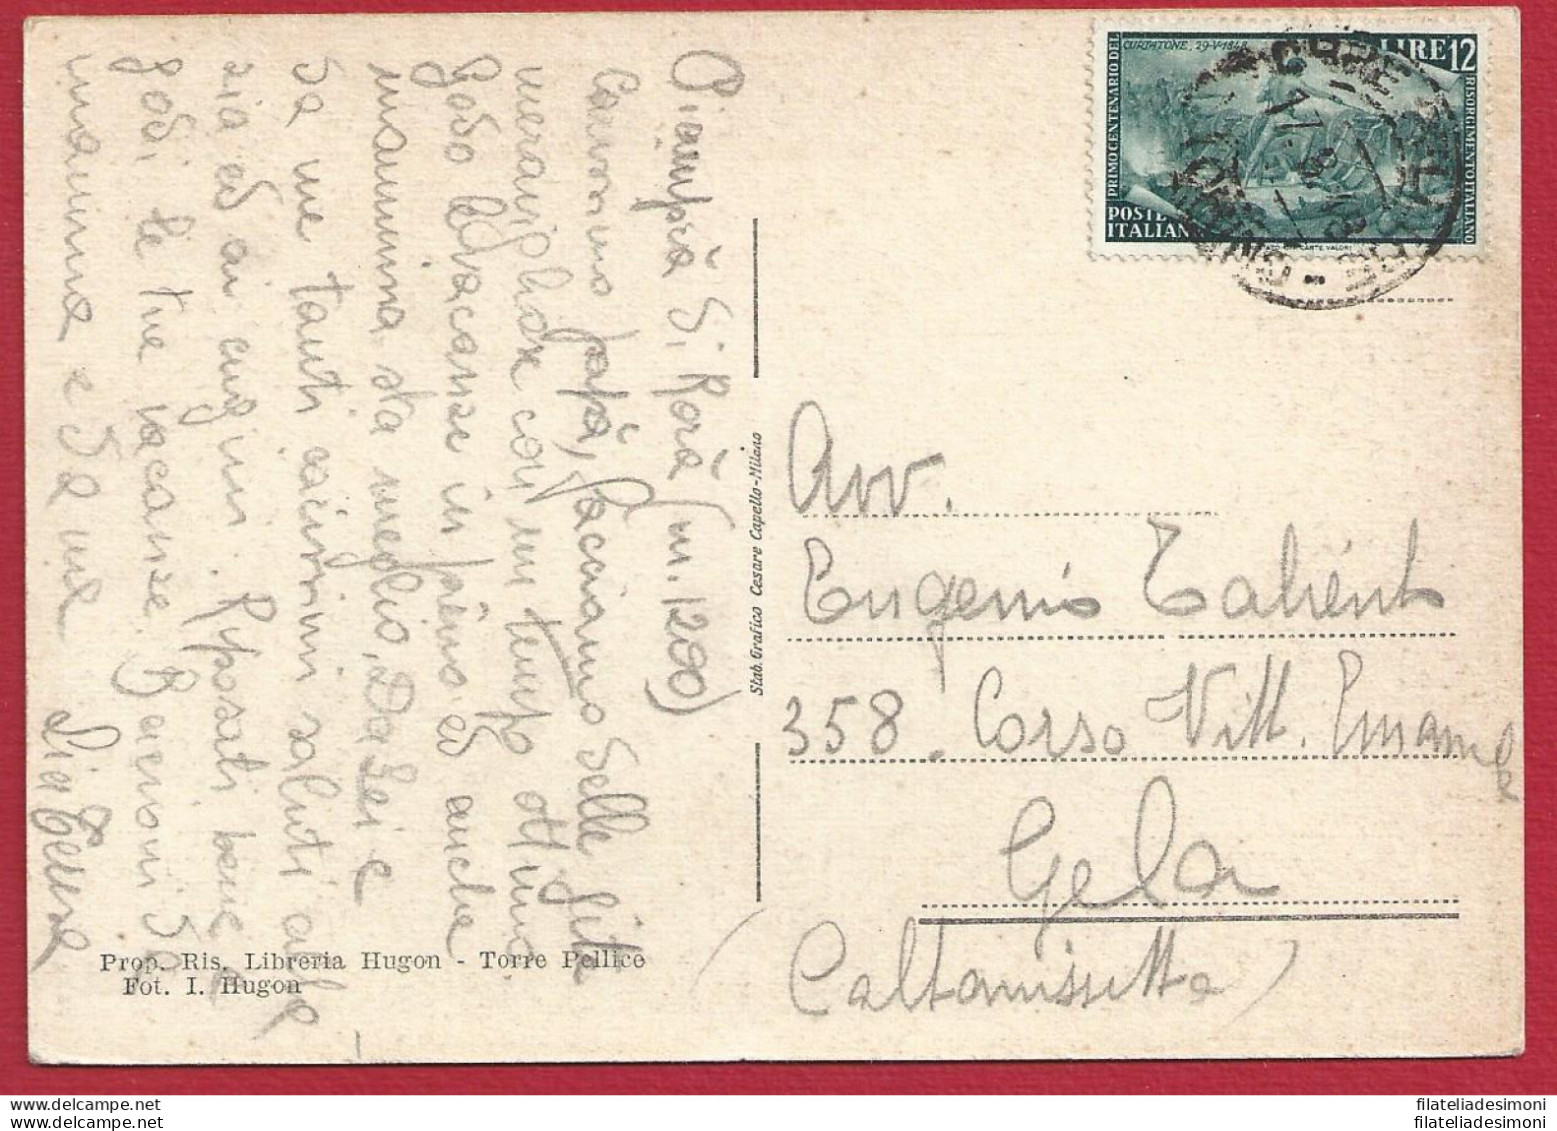 Piamprà di Rorà (m. 1200)
Carissimo papà, facciamo delle gite
meravigliose con un tempo ottimo
Godo le vacanze in pieno ed anche
mammina sta meglio. Da lei e
da me tanti carissimi saluti alla
zia ed ai cugini. Riposati bene e
godi le tue vacanze. Bacioni da
mamma e da me
Prop. Ris. Libreria Hugon - Torre Pellice
Fot. I. Hugon
Stab. Grafico Cesare Capello-Milano
CURTATONE, 29-V-1848
LIRE 12
PRIMO CENTENARIO DEL
RISORGIMENTO ITALIANO
POSTE
ITALIANE
Avv.
Eugenio
358. Corso Vitt. Emanuele
Gela
(Caltanissetta)
filateliadesimoni
filateliadesimoni
www.delcampe.net
www.delcampe.net